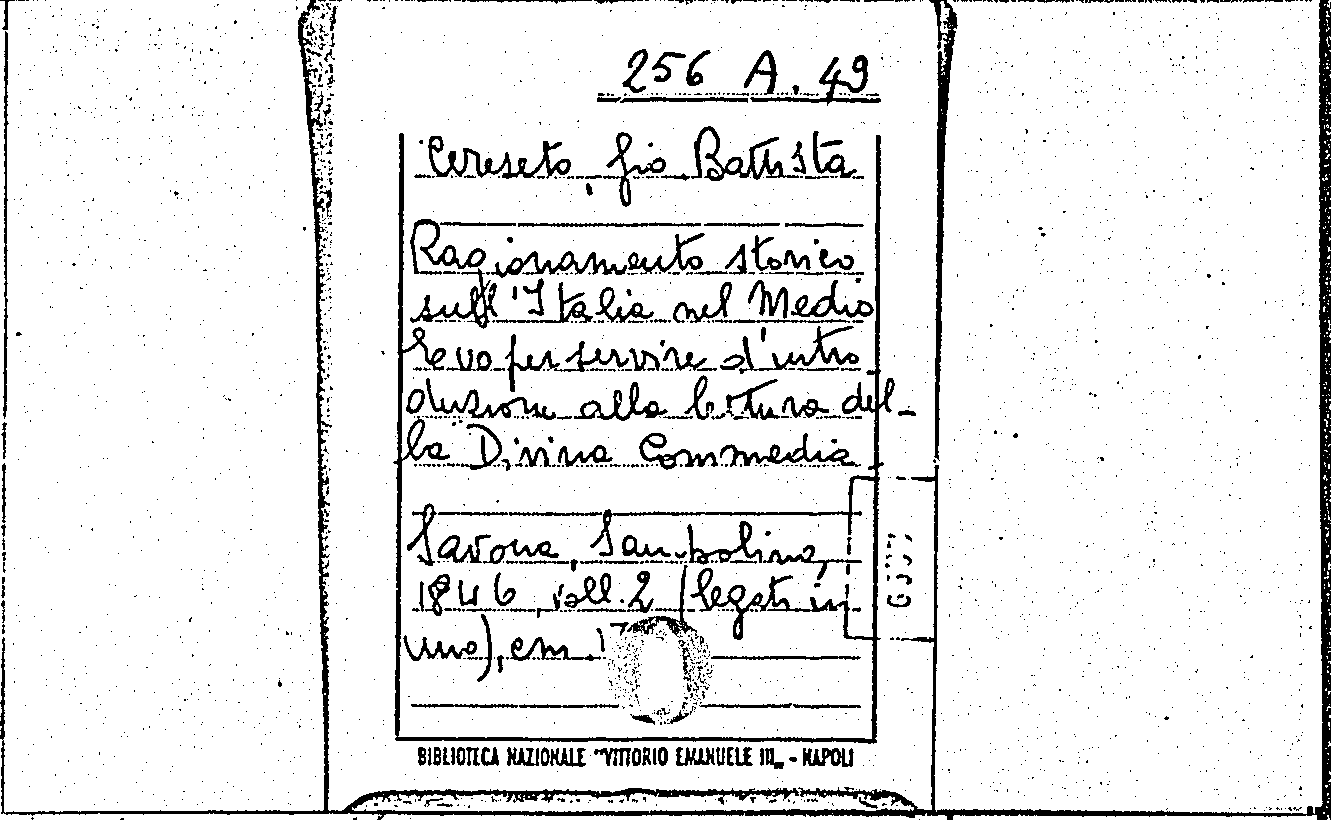 256 A. 49
Cereseto, Gio. Battista
Ragionamento storico
sull'Italia nel Medio
Evo per servire d'intro-
duzione alla lettura del-
la Divina Commedia.
Savona, Sambolino,
1846, voll. 2 (legati in
uno), cm. 17
BIBLIOTECA NAZIONALE "VITTORIO EMANUELE III" - NAPOLI